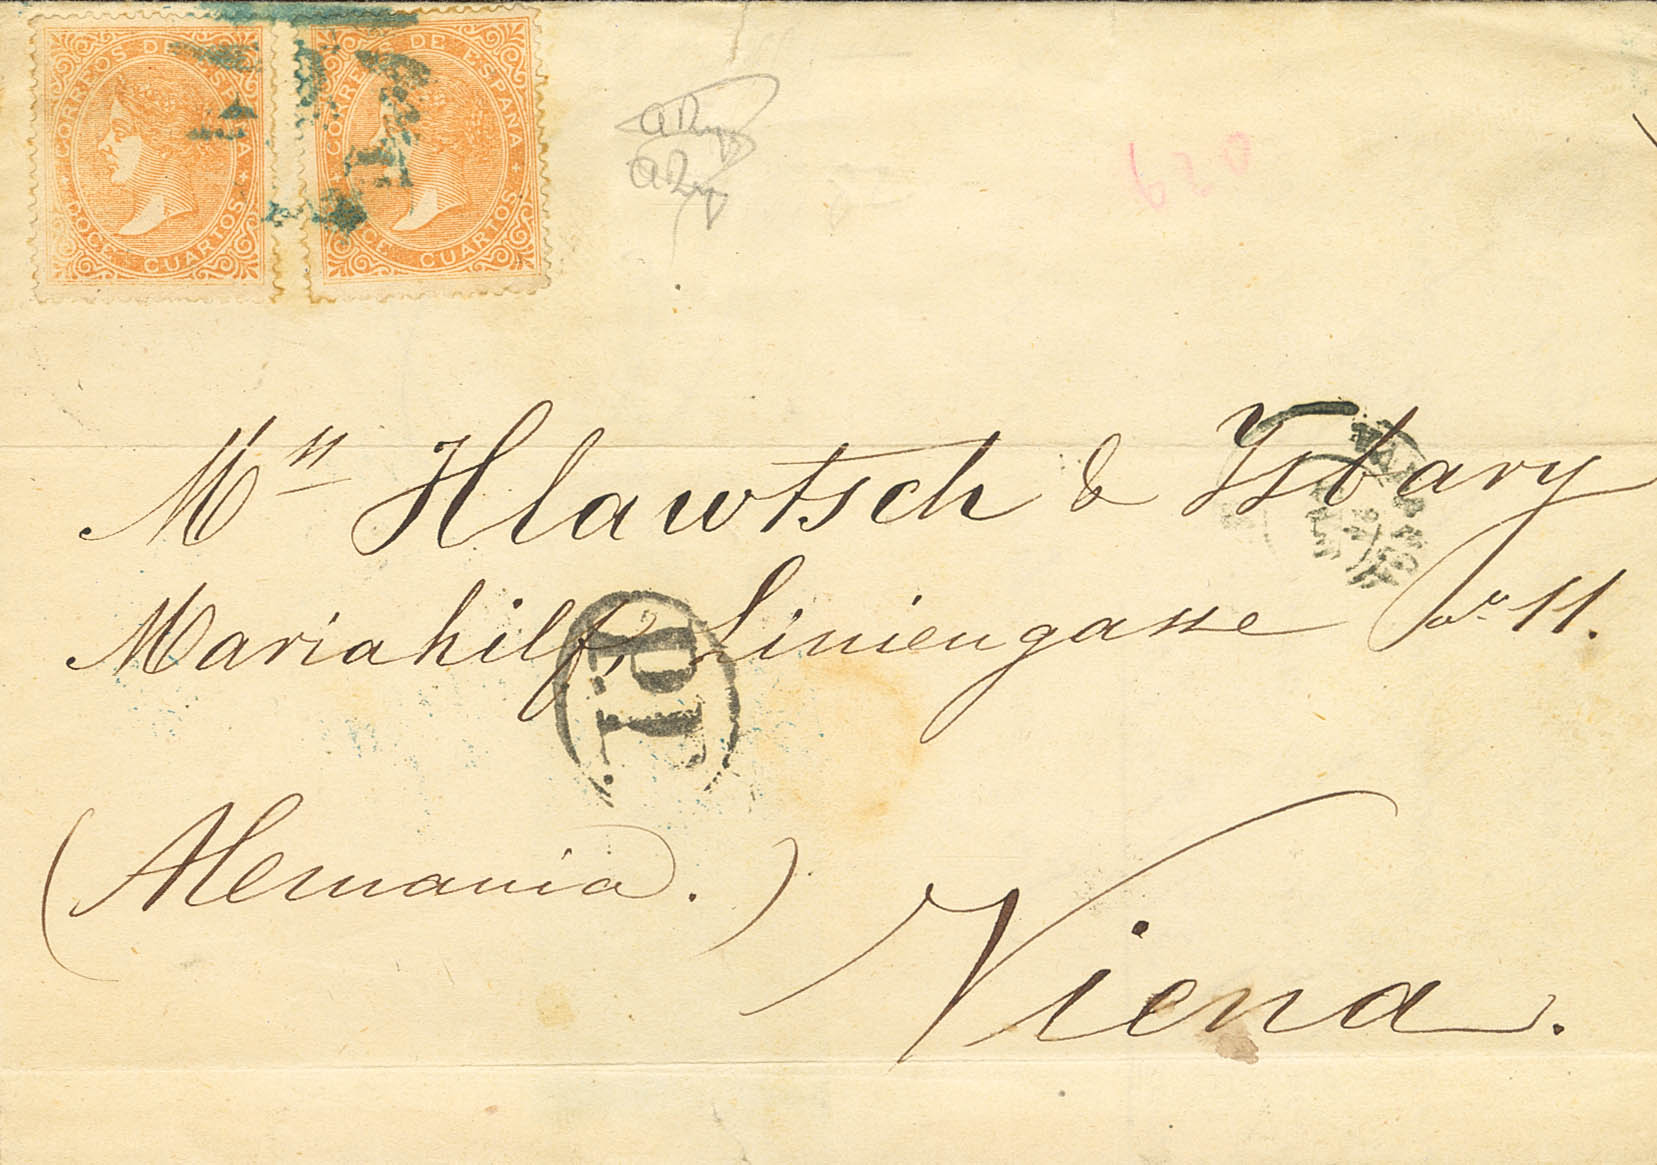 CORREOS DE ESPAÑA
DOCE CUARTOS
CORREOS DE ESPAÑA
DOCE CUARTOS
620
Mrs Hlawtsch & Isbary
Mariahilf, Liniengasse No 11.
P.D.
(Alemania.)
Viena.